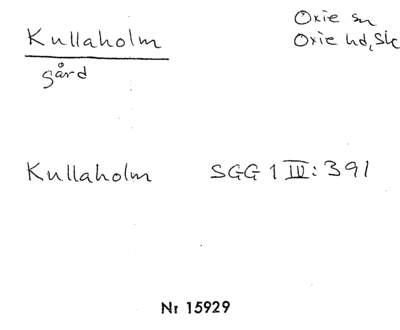 Kullaholm
gård
Oxie sn
Oxie hd, Sk
Kullaholm SGG 1 III: 391
Nr 15929